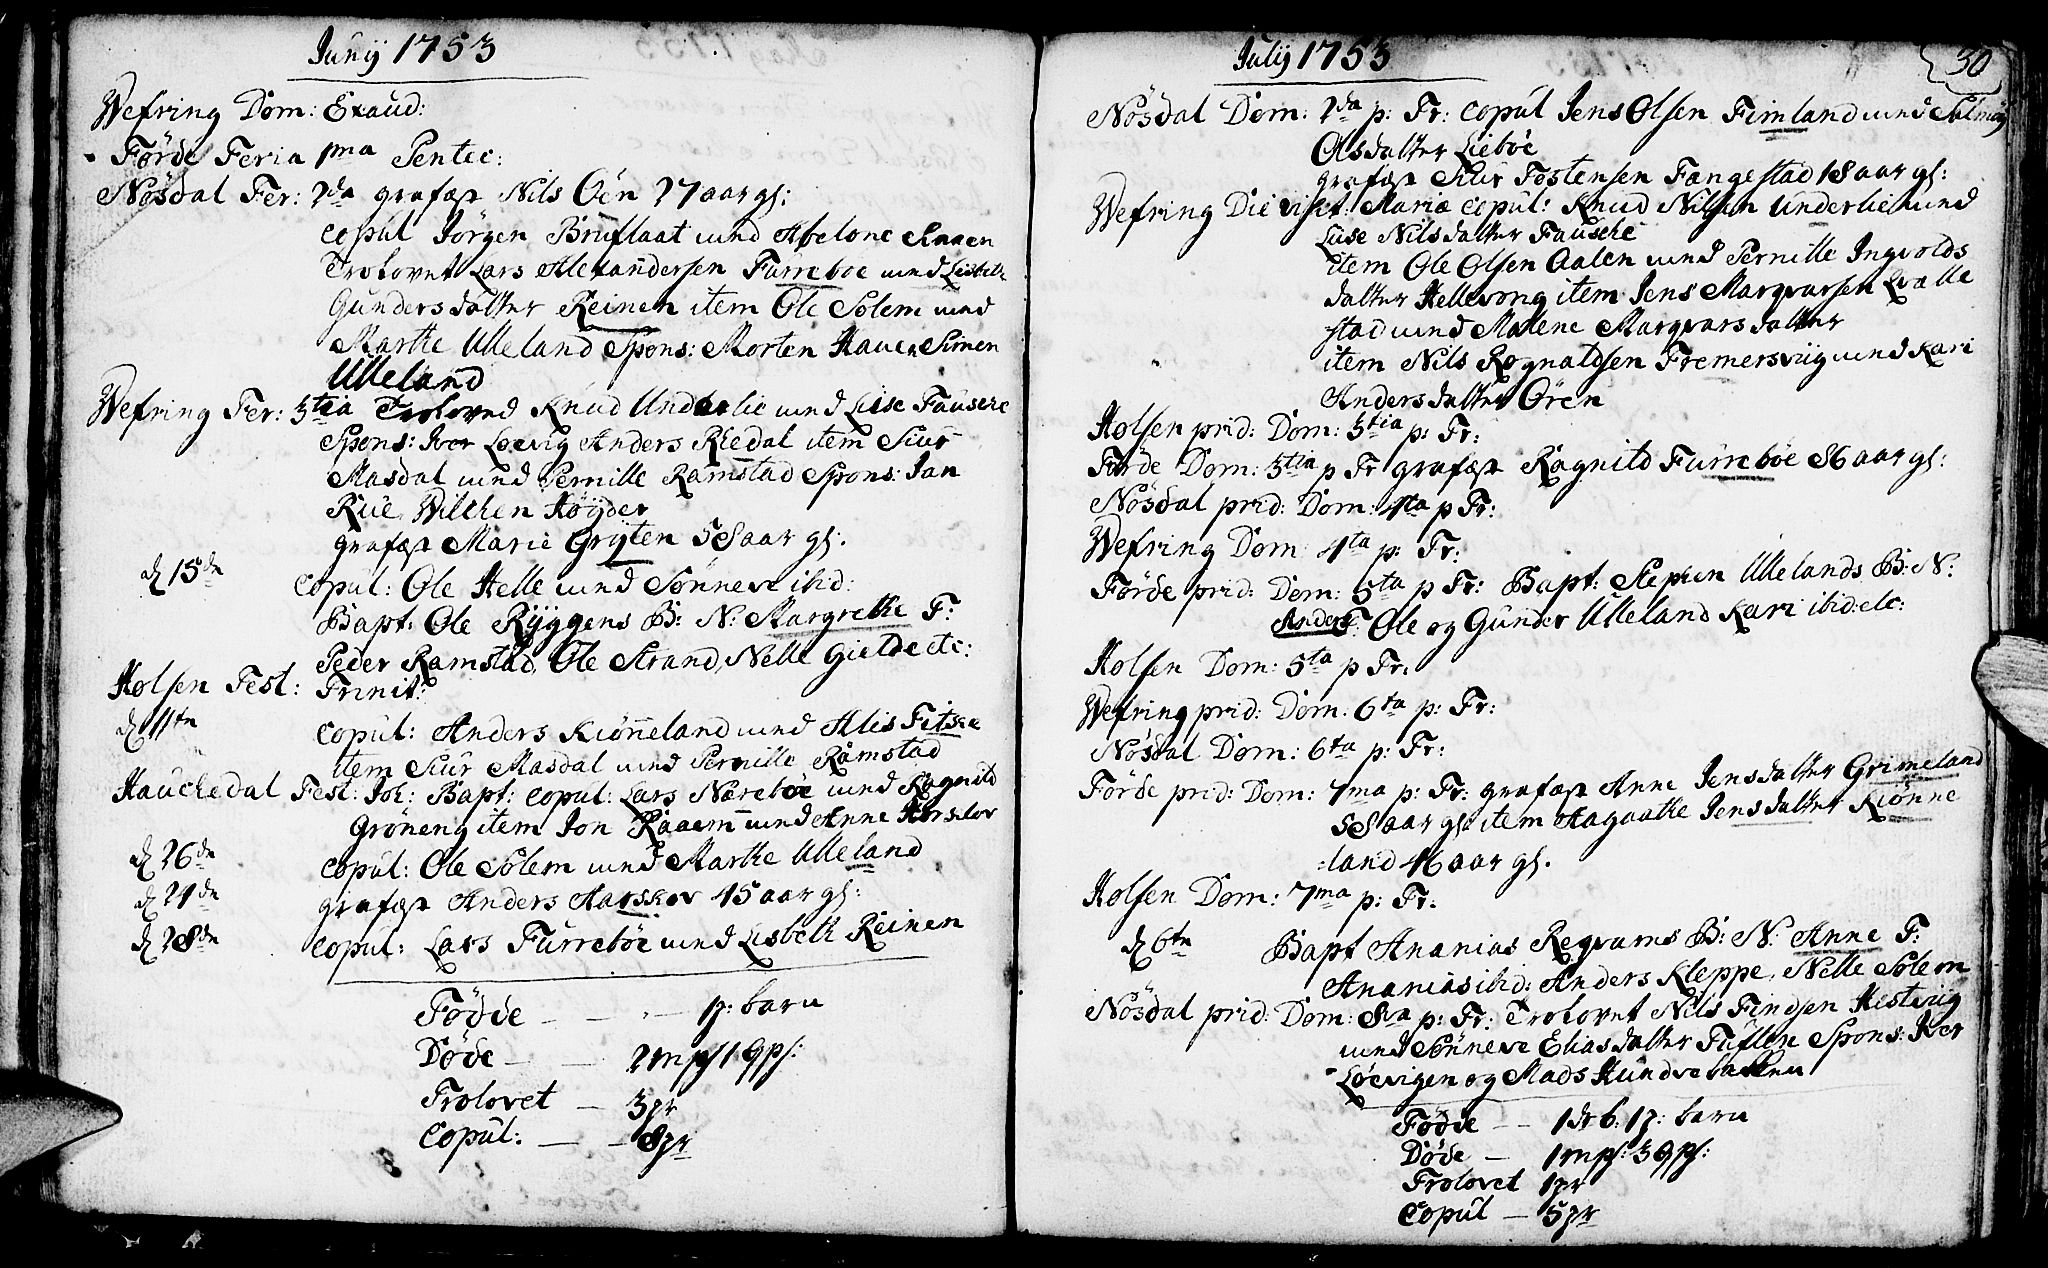 Junij 1753
Wefring Dom: Exaud:
Førde Feria 1ma Pentec:
Nøsdal Fer: 2da grafæst Nils Øen 27 aar gl:
copul Jørgen Bruflaat und Abelone Knaen
Trolovet Lars Alexandersen Furreboe und Lisbeth
Gundersdatter Reinen item Ole Solem und
Marthe Ulleland Spons: Morten Hauen Simen
Ulleland
Wefring Fer: 3tia Troloved Knud Underlie und Liise Fauscke
Spons: Iver Loevig Anders Riedal item Siur
Masdal und Pernille Ramstad Spons: Jan
Riie Willken Høyder
grafæst Marie Gryten 58 aar gl.
d 15de copul: Ole Helle und Sønneve ibid:
Bapt: Ole Rÿggens B: N: Margrethe F:
Peder Ramstad, Ole Strand, Nelle Gielde etc:
Holsen Fest: Trinit:
d 11te copul: Anders Kiønneland und Alis Fitske
item Siur Masdal und Pernille Ramstad
Hauckedal Fest: Joh: Bapt: copul: Lars Næreböe und Ragnild
Grøneng item Jon Raaem und Anne Aarskov
d 26de copul: Ole Solem und Marthe Ulleland
d 24de grafæst Anders Aarskov 45 aar gl:
d 28de copul: Lars Furreböe und Lisbeth Reinen
Fødde — — 1 p: barn
Døde — 2 mps 1 qps:
Trolovet — 3 pr
Copul: — — 8 pr
Julij 1753
30
Nøsdal Dom: 2da p: Tr: copul Jens Olsen Fimland und Solmøÿ
Olsdatter Lieböe
grafæst Siur Tostensen Fangestad 18 aar gl:
Wefring Die visit: Mariæ copul: Knud Nilsen Underlie und
Liise Nilsdatter Fauscke
item Ole Olsen Aalen und Pernille Ingvolds
datter Hellevong item Jens Marqvarsen Qvælle
stad und Malene Marqvarsdatter
item Nils Rognaldsen Fremersviig und Kari
Andersdatter Øren
Holsen prid: Dom: 3tia p: Tr:
Førde Dom: 3tia p Tr grafæst Ragnild Furreböe 86 aar gl:
Nøsdal prid: Dom: 4ta p Tr:
Wefring Dom: 4ta p: Tr:
Førde prid: Dom: 5ta p Tr: Bapt: Stephen Ullelands B: N:
Anders F: Ole og Gunder Ulleland Kari ibid: etc:
Holsen Dom: 5ta p Tr:
Wefring prid: Dom: 6ta p: Tr:
Nøsdal Dom: 6ta p: Tr:
Førde prid: Dom: 7ma p: Tr: grafæst Anne Jensdatter Grimeland
58 aar gl: item Aagaathe Jensdatter Kiønne
:land 46 aar gl.
Holsen Dom: 7ma p: Tr:
d 6te Bapt Ananias Reqvams B: N: Anne F:
Ananias ibid: Anders Kleppe, Nelle Solem
Nøsdal prid: Dom: 8va p: Tr: Trolovet Nils Findsen Hestviig
und Sønneve Eliasdatter Tuflen Spons: Iver
Løevigen og Mads Hundvebakken
Fødde — — 1 dr b: 1 p: barn
Døde — 1 mps: 3 qps:
Trolovet 1 pr
Copul — 5 pr